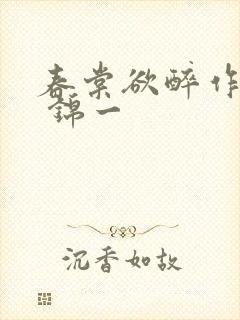 春棠欲醉作
锦一
沉香如故